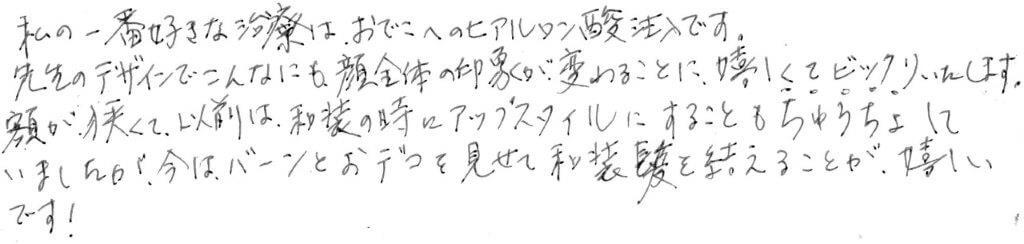 私の一番好きな治療は、おでこへのヒアルロン酸注入です。
先生のデザインでこんなにも顔全体の印象が変わることに、嬉しくてビックリいたします。
額が狭くて、以前は、和装の時にアップスタイルにすることもちゅうちょして
いましたが、今は、バーンとおデコを見せて和装髪を結えることが、嬉しい
です!